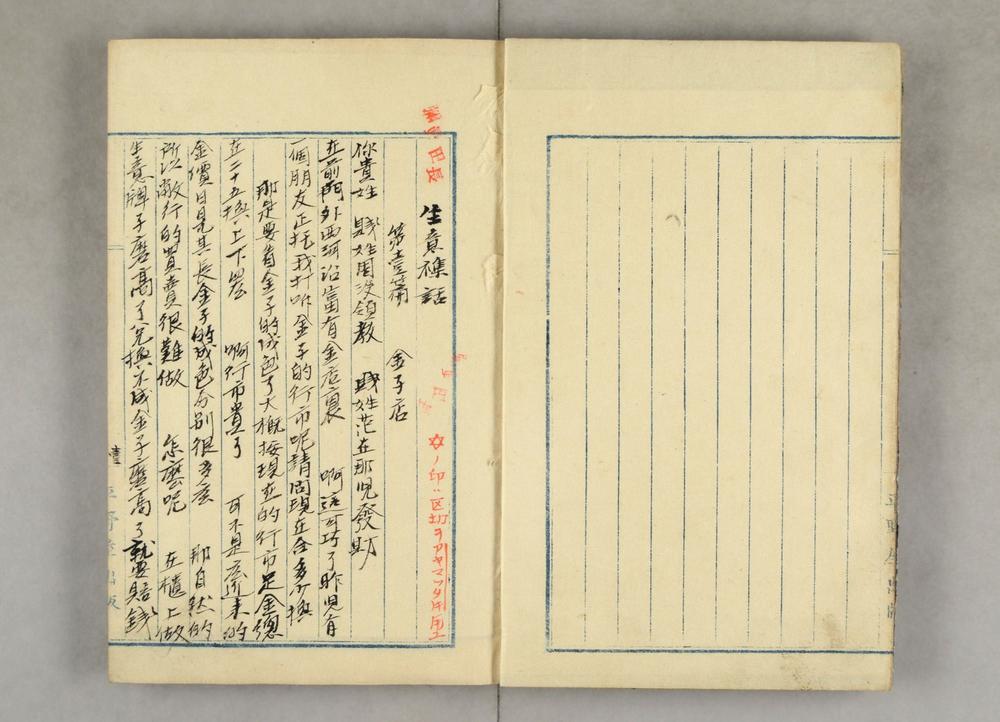 生意襍話
第壹篇 金子店
你貴姓 賤姓周沒領教 賤姓范在那兒發財
在前門外西河沿富有金店裏 啊這可巧了昨兒有
個朋友正托我打听金子的行市呢請問現在合多少換
那是要看金子的成色了大概按現在的行市足金總
在二十五換上下罢 啊行市貴了 可不是広近来的
金價日見其長金子的成色分別很多広 那自然的
所以敝行的買賣很難做 怎麼呢 在櫃上做
生意牌子磨高了兌換不成金子磨高了就要賠錢
ノ印ハ区切ヲアヤマツタ所